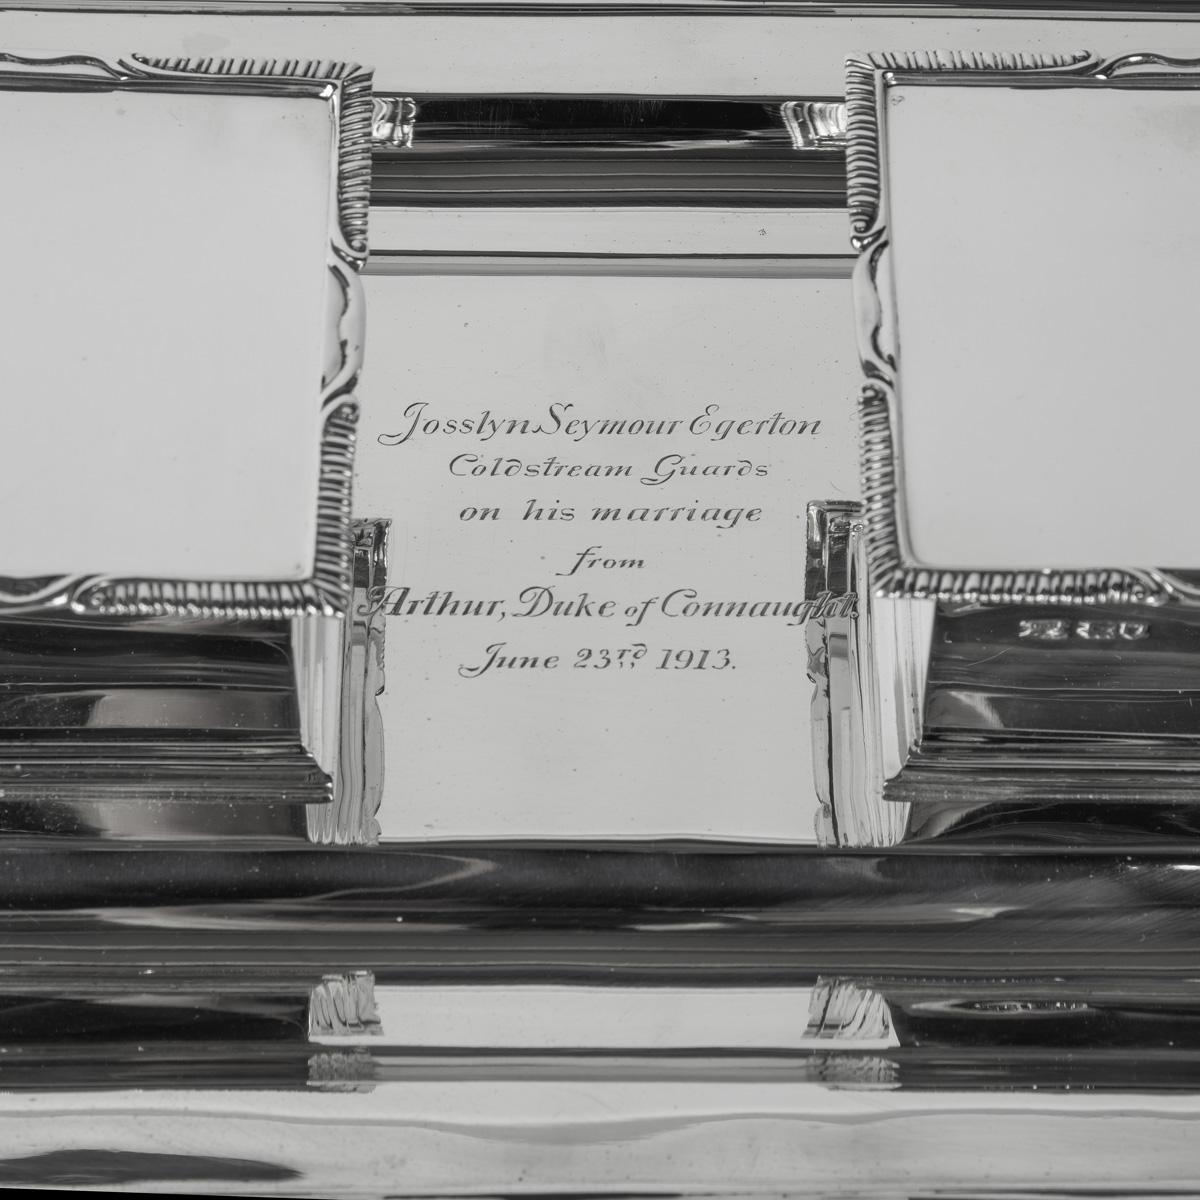 Josslyn Seymour Egerton
Coldstream Guards
on his marriage
from
Arthur, Duke of Connaught.
June 23rd 1913.